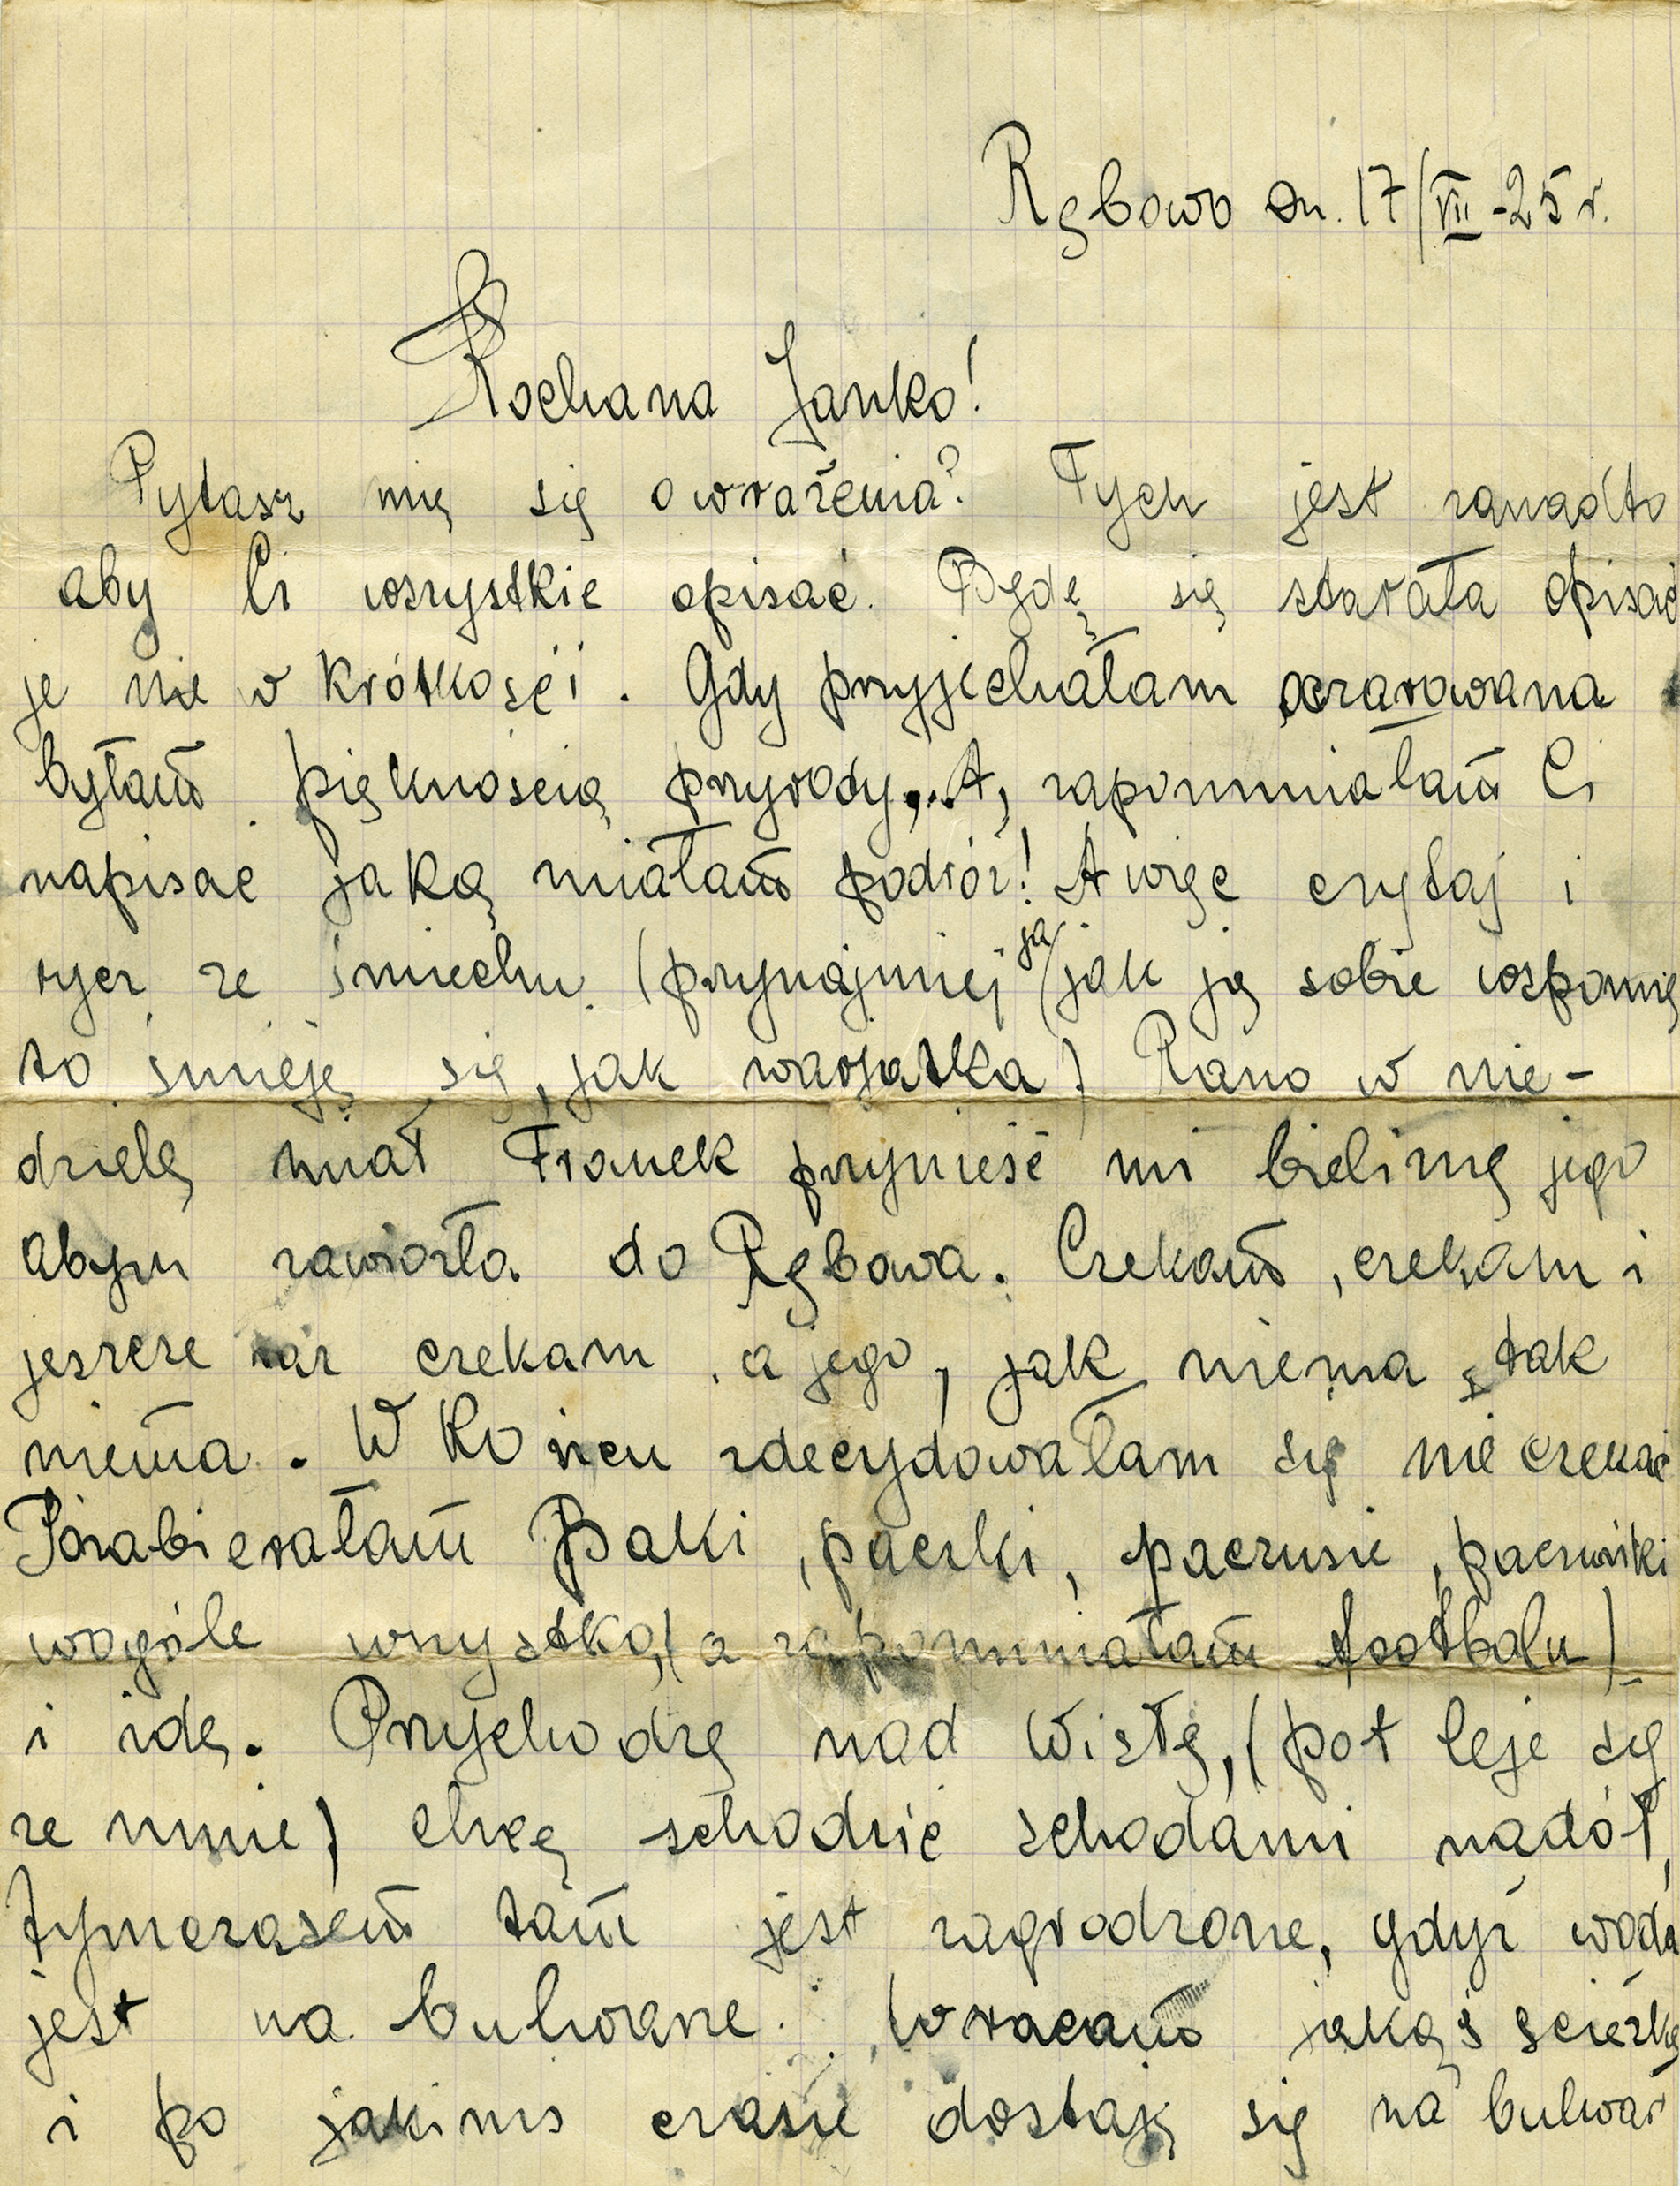 Rębowo dn. 17/VII-25 r.
Kochana Janko!
Pytasz mię się o wrażenia? Tych jest zanadto
aby Ci wszystkie opisać. Będę się starała opisać
je nie w krótkości. Gdy przyjechałam oczarowana
byłam pięknością przyrody,.. A, zapomniałam Ci
napisać jaką miałam podróż! A więc czytaj i
rycz ze śmiechu. (przynajmniej ja jak ją sobie wspomnę
to śmieję się, jak warjatka) Rano w nie-
dzielę miał Franek przynieść mi bieliznę jego
abym zawiozła do Rębowa. Czekam, czekam i
jeszcze raz czekam, a jego, jak niema, tak
niema. W końcu zdecydowałam się nie czekać
Pozabierałam paki, paczki, paczusie, paczuszki
wogóle wszystko, (a zapomniałam footbalu)
i idę. Przychodzę nad Wisłę, (pot leje się
ze mnie) chcę schodzić schodami nadół,
tymczasem tam jest zagrodzone, gdyż woda
jest na bulwarze. Wracam jakąś ścieżką
i po jakimś czasie dostaję się na bulwar